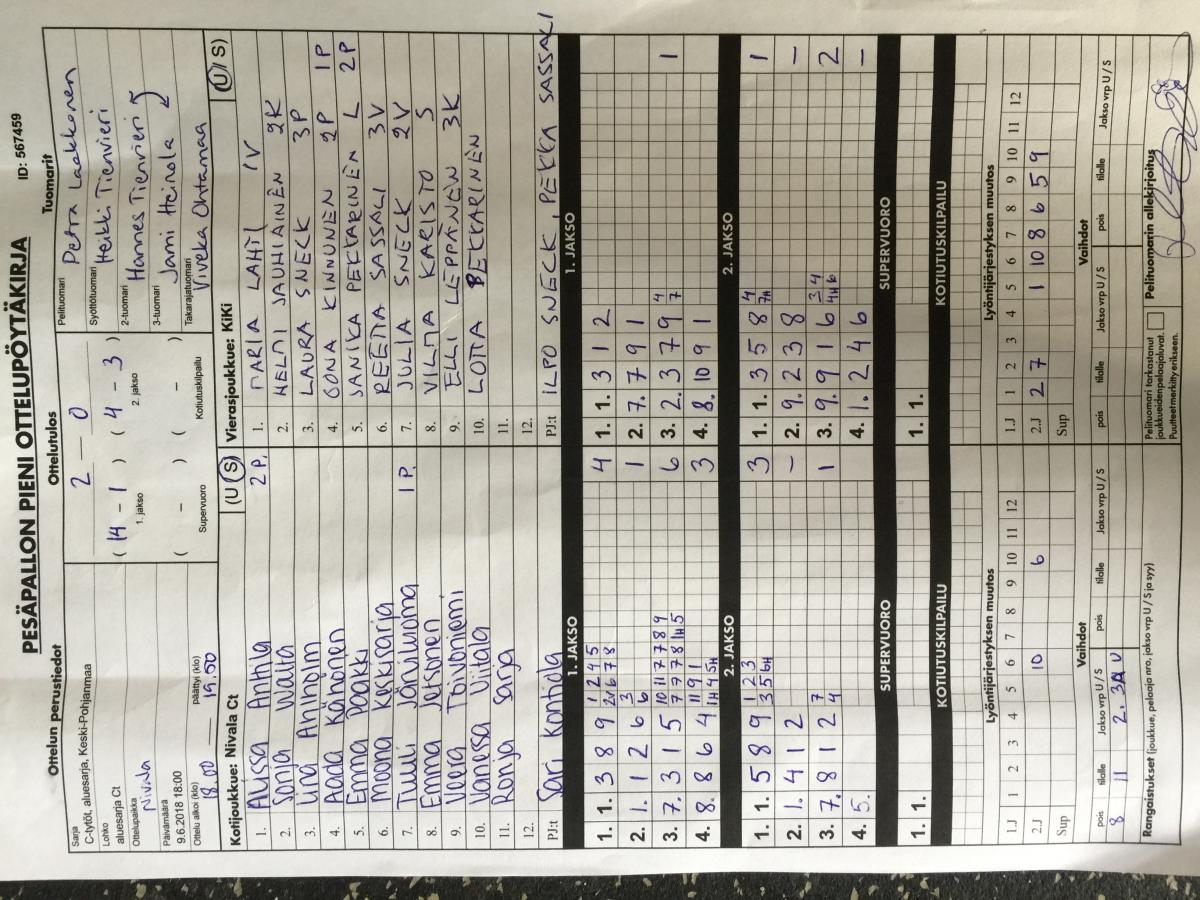 PESÄPALLON PIENI OTTELUPÖYTÄKIRJA
ID: 567459
Ottelun perustiedot
Sarja
C-tytöt, aluesarja, Keski-Pohjanmaa
Lohko
aluesarja Ct
Ottelupaikka
Nivala
Päivämäärä
9.6.2018 18:00
Ottelu alkoi (klo)
päättyi (klo)
18.00 19.50
Ottelutulos
2 - 0
( 14 - 1 ) ( 4 - 3 )
1. jakso 2. jakso
( - ) ( - )
Supervuoro Kotiutuskilpailu
Tuomarit
Pelituomari
Petra Laakkonen
Syöttötuomari
Heikki Tienvieri
2-tuomari
Hannes Tienvieri
3-tuomari
Jami Heinola
Takarajatuomari
Viveka Ohtamaa
Kotijoukkue: Nivala Ct (U / S)
1. Alissa Anttila 2P.
2. Sonja Walta
3. Lina Ahlholm
4. Aada Kähönen
5. Emma Paakki
6. Moona Keskisarja
7. Tuuli Järviluoma 1P.
8. Emma Jetsonen
9. Veera Toivoniemi
10. Vanessa Viitala
11. Ronja Sarja
12.
PJ:t Sari Kontiola
Vierasjoukkue: KiKi (U / S)
1. MARIA LAHTI 1V
2. HELMI JAUHIAINEN 2K
3. LAURA SNECK 3P
4. OONA KINNUNEN 2P 1P
5. SANIKA PEKKARINEN L 2P
6. REETTA SASSALI 3V
7. JULIA SNECK 2V
8. VILMA KARISTO S
9. ELLI LEPPÄNEN 3K
10. LOTTA PEKKARINEN
11.
12.
PJ:t ILPO SNECK, PEKKA SASSALI
1. JAKSO
1. 1. 3 8 9 4
2. 1. 1 2 6 1
3. 7. 3 1 5 6
4. 8. 8 6 4 3
1. JAKSO
1. 1. 3 1 2
2. 7. 7 9 1
3. 2. 3 7 9 4 7 1
4. 8. 10 9 1
2. JAKSO
1. 1. 5 8 9 1 2 3 3
2. 1. 4 1 2 -
3. 7. 8 1 2 7 4 1
4. 5.
2. JAKSO
1. 1. 3 5 8 4 7H 1
2. 9. 2 3 8 -
3. 9. 9 1 6 2
4. 1. 2 4 6 -
SUPERVUORO
1. 1.
SUPERVUORO
1. 1.
KOTIUTUSKILPAILU
KOTIUTUSKILPAILU
Lyöntijärjestyksen muutos
1 2 3 4 5 6 7 8 9 10 11 12
1.J
2.J 10 6
Sup
Lyöntijärjestyksen muutos
1 2 3 4 5 6 7 8 9 10 11 12
1.J
2.J 2 7 1 10 8 6 5 9
Sup
Vaihdot
pois tilalle Jakso vrp U / S pois tilalle Jakso vrp U / S
8 11 2. 3A U
Vaihdot
pois tilalle Jakso vrp U / S pois tilalle Jakso vrp U / S
Rangaistukset (joukkue, pelaaja nro, jakso vrp U / S ja syy)
Pelituomari tarkastanut
joukkueiden pelaajaluvat.
Puutteet merkitty erikseen.
Pelituomarin allekirjoitus